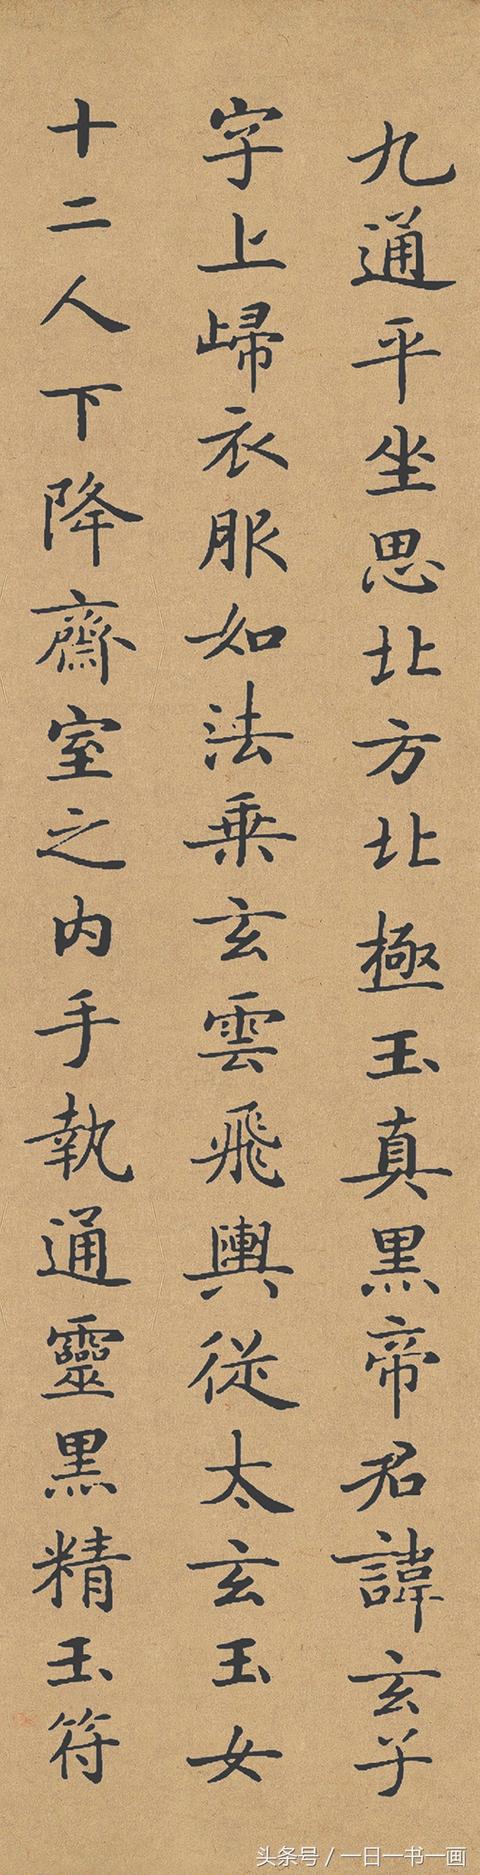 九通平坐思北方北極玉真黒帝君諱玄子
字上歸衣服如法乗玄雲飛輿從太玄玉女
十二人下降齋室之内手執通靈黒精玉符
头条号 / 一日一书一画